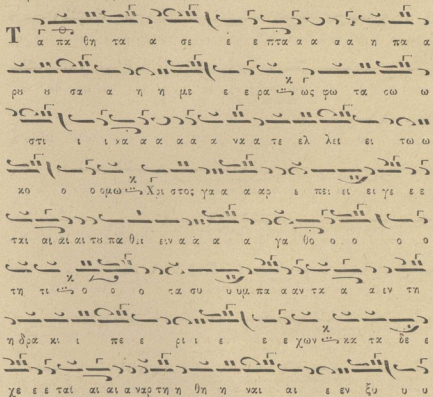 Τ α πα θη τα α σε ε ε πτα α α α α η πα α
ρȣ ȣ σα α η η με ε ε ρα ως φω τα σω ω
στι ι ι να α α α α α να α τε ελ λει ει τω ω
κο ο ο ομω Χρι στος γα α α αρ ε πει ει ει γε ε ε
ται αι αι αι τȣ πα θει ειν α α α α γα θο ο ο ο ο
τη τι ο ο ο τα συ υ υμ πα α αν τα α α εν τη
η δρα κι ι πε ε ρι ι ε ε ε ε χων κα τα δε ε
χε ε ε ται αι αι α ναρ τη η θη η ναι αι ε εν ξυ υ υ